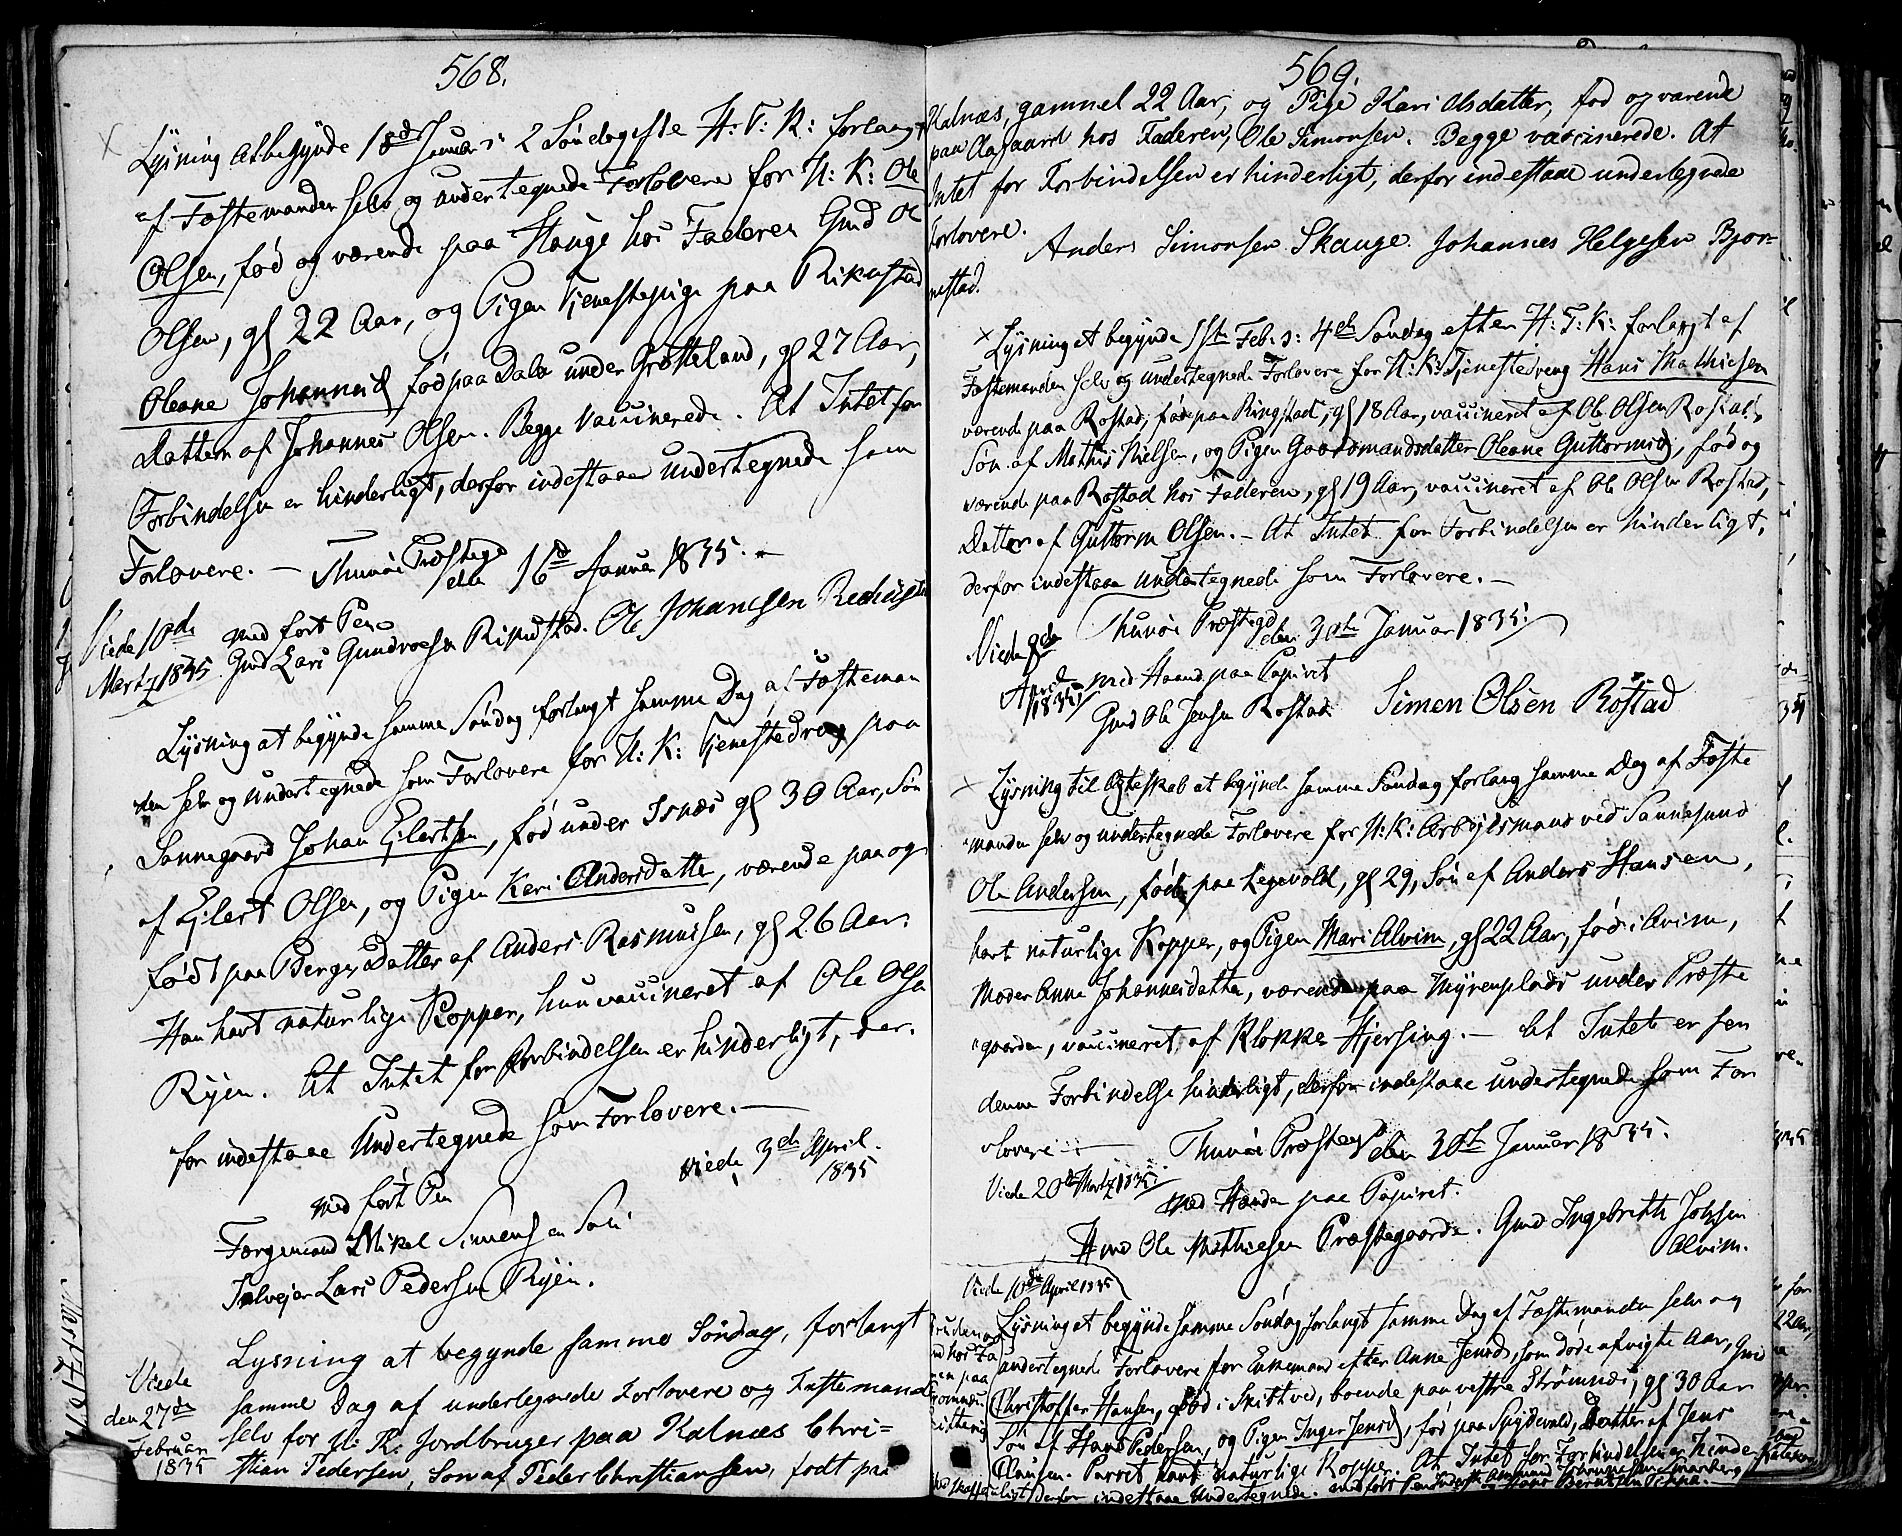 568.
Lysning at begynde 18de Januar: 2 Söndag efter H: T: K: forlangt
af Fæstemanden selv og undertegnede Forlovere for U: K: Ole
Olsen, fød og værende paa Hauge hos Faderen Gmd Ole
Olsen, gl 22 Aar, og Pigen Tjenestepige paa Rikustad
Oleane Johannesd, fød paa Dale under Grötteland, gl 27 Aar,
Datter af Johannes Olsen. Begge Vaccinerede. At Intet for
Forbindelsen er hinderligt, derfor indestaae undertegnede som
Forlovere. — Thunöe Præstegd den 16de Januar 1835. —
Viede 10de
Martz 1835
med ført Pen
Gmd Lars Gundvorsen Rikustad. Ole Johannesen
Lysning at begynde samme Söndag forlangt samme Dag af Fæsteman
den selv og undertegnede som Forlovere for U: K: Tjenestedreng paa
Sannegaard Johan Eilertsen, fød under Isnæs gl 30 Aar, Sön
af Eilert Olsen, og Pigen Kari Andersdatter, værende paa og
født paa Berge, Datter af Anders Rasmussen, gl 26 Aar.
Han havt naturlige Kopper, hun vaccineret af Ole Olsen
Ryen. At Intet for Forbindelsen er hinderligt, der-
for indestaae Undertegnede som Forlovere. —
Viede 3de April
1835
med ført Pen
Færgemand Mikel Simensen
Lars Pedersen Ryen.
Lysning at begynde samme Söndag, forlangt
Viede
den 27de
Februar
1835
samme Dag af undertegnede Forlovere og Fæstemand
selv for U: K: Jordbruger paa Kalnæs Chri=
stian Pedersen, Søn af Peder Christiansen, født paa
569.
Kalnæs, gammel 22 Aar, og Pige Kari Olsdatter, fød og værende
paa Aagaard hos Faderen, Ole Simonsen. Begge vaccinerede. At
Intet for Forbindelsen er hinderligt, derfor indestaae undertegnede
forlovere.
Anders Simonsen Skauge. Johannes Helgesen Bjør=
nestad.
Lysning at begynde 1ste Feb: s: 4de Söndag efter H: T: K: forlangt af
Fæstemanden selv og undertegnede Forlovere for U: K: Tjenestedreng Hans Mathiesen
værende paa Rostad, fød paa Ringstad, gl 18 Aar, vaccineret af Ole Olsen Rostad,
Sön af Mathis Nielsen, og Pigen Gaardmandsdatter Oleane Guttormsd, fød og
værende paa Rostad hos Faderen, gl 19 Aar, vaccineret af Ole Olsen Rostad,
Datter af Guttorm Olsen. — At Intet for Forbindelsen er hinderligt,
derfor indestaae undertegnede som Forlovere. —
Thunöe Præstegd den 30te Januar 1835.
Viede
April
1835
med Haand paa Papiret
Gmd Ole Jensen Rostad Simen Olsen Rostad
Lysning til Ægteskab at begynde samme Söndag forlang samme Dag af Fæste
manden selv og undertegnede Forlovere for U: K: Arbeidsmand ved Sannesund
Ole Andersen, fød paa Legevold, gl 29, Sön af Anders Hansen,
havt naturlige Kopper, og Pigen Mari Alvim, gl 22 Aar, fød i Alvim,
Moder Anne Johannesdatter, værende paa Myrenplads under Præste
gaarden, vaccineret af Klokker Hjersing. — At Intet er for
denne Forbindelse hinderligt, derfor indestaae undertegnede som For
lovere — Thunöe Præstegd den 30te Januar 1835.
Viede 20de Martz 1835
med Handen paa Papiret.
Gmd Ole Mathiesen Præstegaarden. Gmd Ingebreth Johsen
Alvim.
Viede 10de April 1835
Lysning at begynde samme Söndag forlangt samme Dag af Fæstemanden selv og
undertegnede Forlovere for Enkemand efter Anne Jensd, som döde afvigte Aar, Gmd
Christoffer Hansen, fød i Skibtved, boende paa vestre Strömnæs, gl 30 Aar
Sön af Hans Pedersen, og Pigen Inger Jensd, fød paa Spydevold, Datter af Jens
Clausen. Parret havt naturlige Kopper. At Intet for Forbindelsen er hinder
ligt, derfor indestaae Undertegnede.